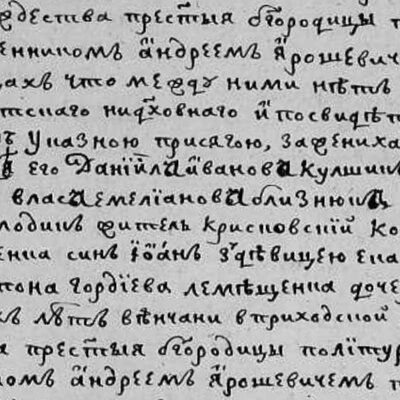 рождества прест҃ыя бг҃ородицы
енникомъ андреемъ ярошевич
цахъ что между ними нѣтъ
тскаго ни дх҃овнаго и посвидѣт
ъ указною присягою, за жениха
его Данїила иванова кулшин
власа емелїанова близнюка
лодикъ житель крисковскїй ко
енка синъ їоанъ з дѣвицею ека
тона гордїева лемѣщенка доче
хъ лѣтъ вѣнчани в приходской
а прест҃ыя бг҃ородицы политур
комъ андреемъ ярошевичемъ